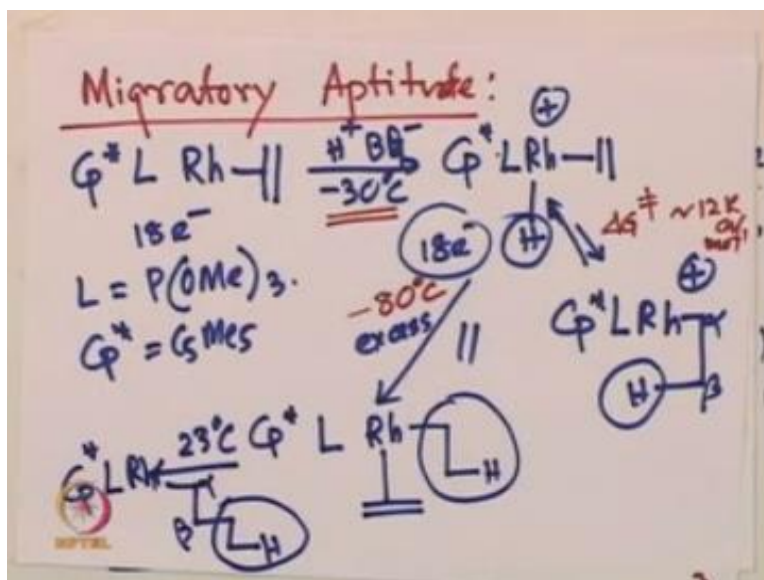 Migratory Aptitude:
Cp* L Rh-|| H⁺ BF₄⁻ -30°C Cp* L Rh-|| ⊕
H
18e⁻
18e⁻
L = P(OMe)₃.
Cp* = C₅Me₅
ΔG‡ ~12 K
mol⁻¹
-80°C
excess ||
⊕
Cp* L Rh-α
H β
Cp* L Rh H
23°C
Cp* L Rh α
β H
NPTEL